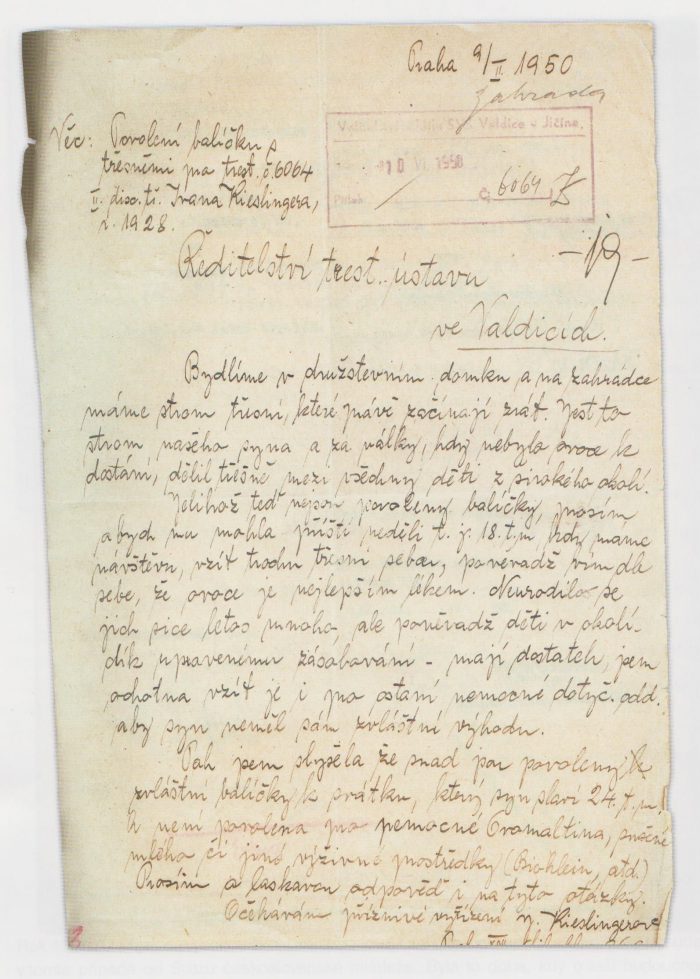 Praha 9/VI 1950
Zahrada
Věc: Povolení balíčku s
třešněmi pro trest. č. 6064
II. disc. tř. Ivana Kieslingera,
r. 1928.
Valdice u Jičína.
10 VI 1950
Č. 6064
Ředitelství trest. ústavu
ve Valdicích.
Bydlíme v družstevním domku a na zahrádce
máme strom třešní, které právě začínají zrát. Jest to
strom našeho syna a za války, kdy nebylo ovoce k
dostání, dělil třešně mezi všechny děti z širokého okolí.
Jelikož teď nejsou povoleny balíčky, prosím
abych mu mohla příští neděli t. j. 18. t.m, kdy máme
návštěvu, vzít trochu třešní sebou, poněvadž vím dle
sebe, že ovoce je nejlepším lékem. Neurodilo se
jich sice letos mnoho, ale poněvadž děti v okolí -
dík upravenému zásobování - mají dostatek, jsem
ochotna vzít je i pro ostaní nemocné dotyč. odd.
aby syn neměl sám zvláštní výhodu.
Pak jsem slyšela že snad jsou povoleny
zvláštní balíčky k svátku, který syn slaví 24. t. m.
není povolena pro nemocné Ovomaltina, sušené
mléko či jiné výživné prostředky (Biohlein, atd.)
Prosím o laskavou odpověď i na tyto otázky.
Očekávám příznivé vyřízení Kieslingerová